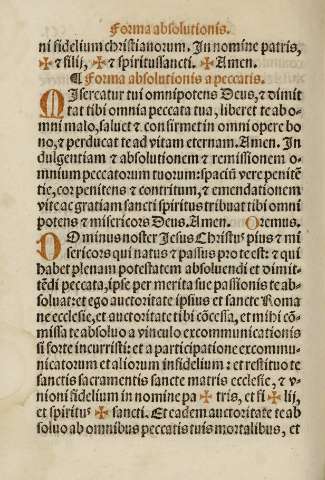 Forma absolutionis.
ni fidelium christianorum. In nomine patris,
✠ & filij, ✠ & spiritussancti. ✠ Amen.
¶ Forma absolutionis a peccatis.
MIsereatur tui omnipotens Deus, & dimit
tat tibi omnia peccata tua, liberet te ab o-
mni malo, saluet & confirmet in omni opere bo
no, & perducat te ad vitam eternam. Amen. In
dulgentiam & absolutionem & remissionem o-
mnium peccatorum tuorum: spaciū vere peniten̄
tie, cor penitens & contritum, & emendationem
vite ac gratiam sancti spiritus tribuat tibi omni
potens & misericors Deus. Amen. Oremus.
DOminus noster Jesus Christus pius & mi
sericors qui natus & passus pro te est: & qui
habet plenam potestatem absoluendi et dimit-
tēdi peccata, ipse per merita sue passionis te ab-
soluat: et ego auctoritate ipsius et sancte Roma
ne ecclesie, et auctoritate tibi cōcessa, et mihi cō-
missa te absoluo a vinculo excommunicationis
si forte incurristi: et a participatione excommu-
nicatorum et aliorum infidelium: et restituo te
sanctis sacramentis sancte matris ecclesie, & v-
nioni fidelium in nomine pa ✠ tris, et fi ✠ lij,
et spiritus ✠ sancti. Et eadem auctoritate te ab
soluo ab omnibus peccatis tuis mortalibus, et